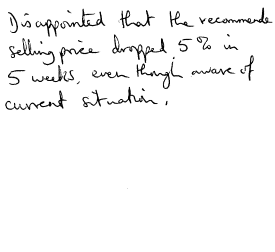 Disappointed that the recommende
selling price dropped 5% in
5 weeks, even though aware of
current situation.